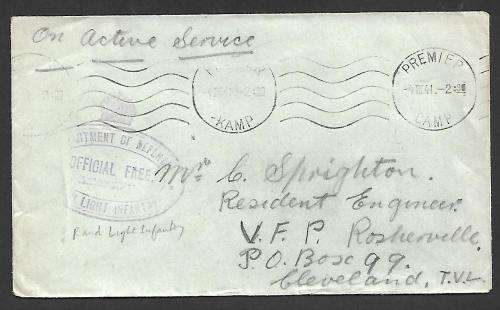 On Active Service
PREMIER
-4 VIII 41.-2
CAMP
-4 VIII 41.-2
-KAMP
DEPARTMENT OF DEFENCE
OFFICIAL FREE
LIGHT INFANTRY
Rand Light Infantry
Mr. C. Sprighton.
Resident Engineer.
V. F. P. Rosherville.
P.O. Box 99.
Cleveland, T.V.L.